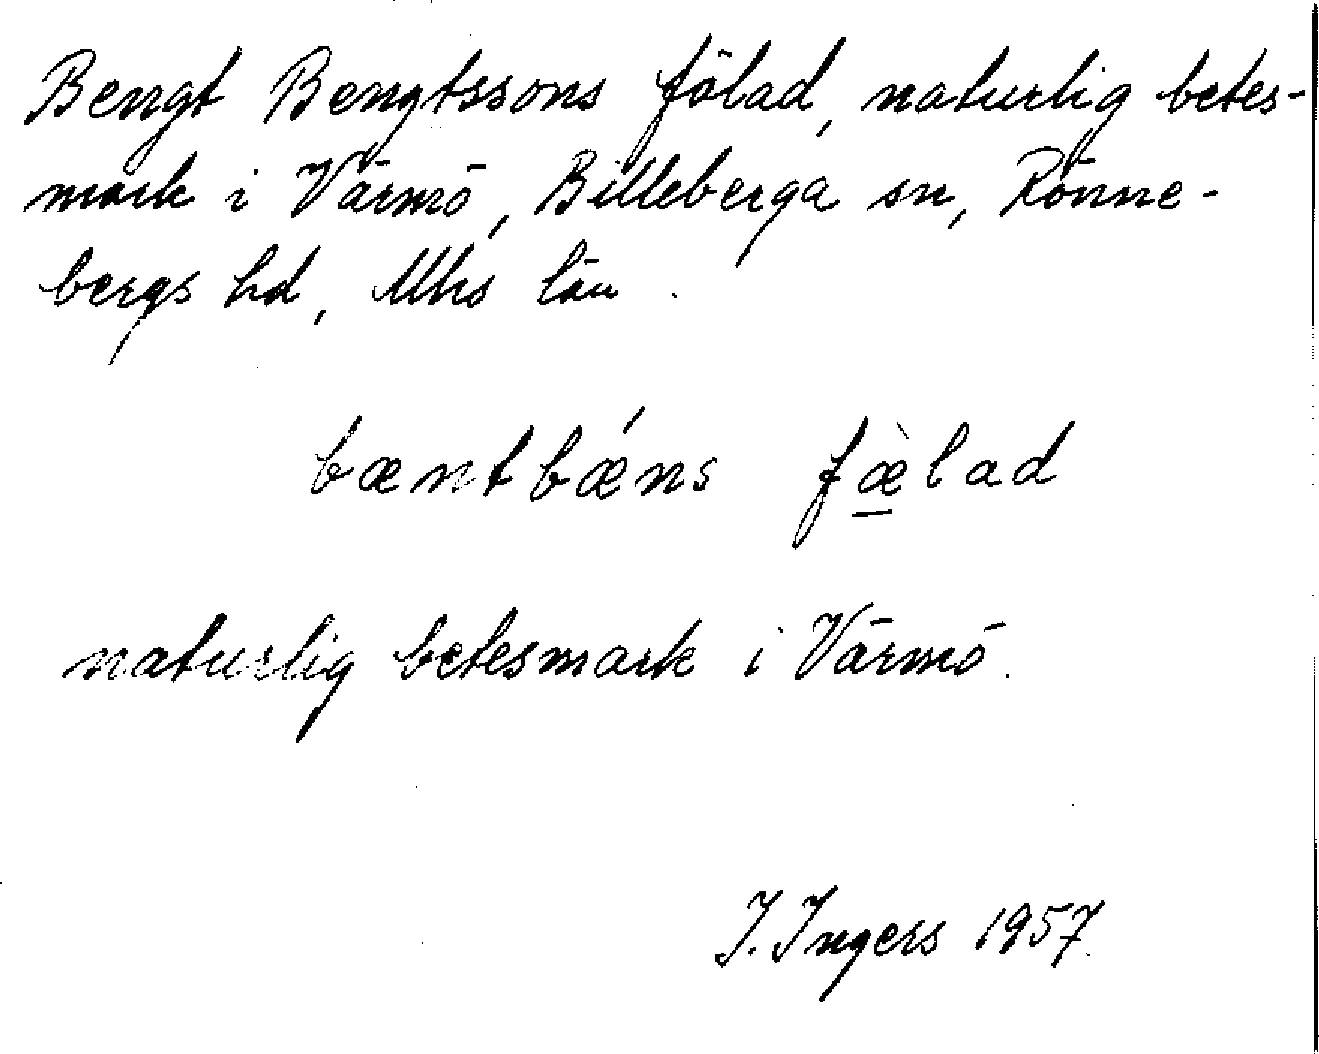 Bengt Bengtssons fölad, naturlig betes-
mark i Värmö, Billeberga sn, Rönne-
bergs hd, Mhs län.
bæntbǽns fæ̱̀lad
naturlig betesmark i Värmö.
I. Ingers 1957.